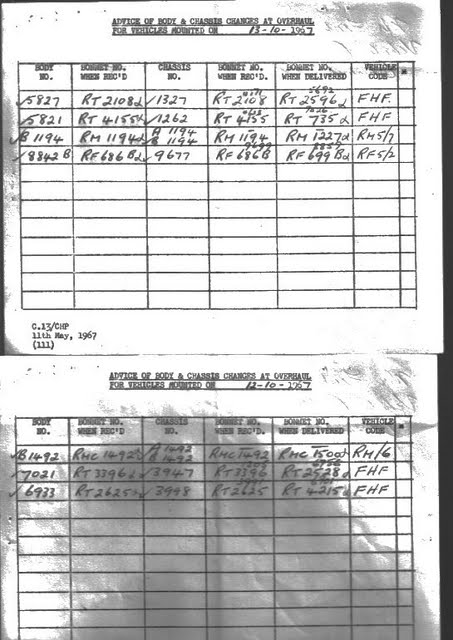 ADVICE OF BODY & CHASSIS CHANGES AT OVERHAUL
FOR VEHICLES MOUNTED ON 13-10-1967
BODY NO. BONNET NO. WHEN REC'D CHASSIS NO. BONNET NO. WHEN REC'D. BONNET NO. WHEN DELIVERED VEHICLE CODE
✓5827 RT2108 ✓1327 RT2108 RT2596 FHF.
✓5821 RT4155 ✓1262 RT4155 RT735 FHF
✓B1194 RM1194 A 1194 B 1194 RM1194 RM1227 RM5/7
✓8842B RF686B ✓9677 RF686B RF699B RF5/2
C.13/CHP
11th May, 1967
(111)
ADVICE OF BODY & CHASSIS CHANGES AT OVERHAUL
FOR VEHICLES MOUNTED ON 12-10-1967
BODY NO. BONNET NO. WHEN REC'D CHASSIS NO. BONNET NO. WHEN REC'D. BONNET NO. WHEN DELIVERED VEHICLE CODE
✓B1492 RMC1492 A 1492 B 1492 RMC1492 RMC1500 RM/6
✓7021 RT3396 ✓3947 RT3396 RT2528 FHF
✓6933 RT2625 ✓3998 RT2625 RT4215 FHF